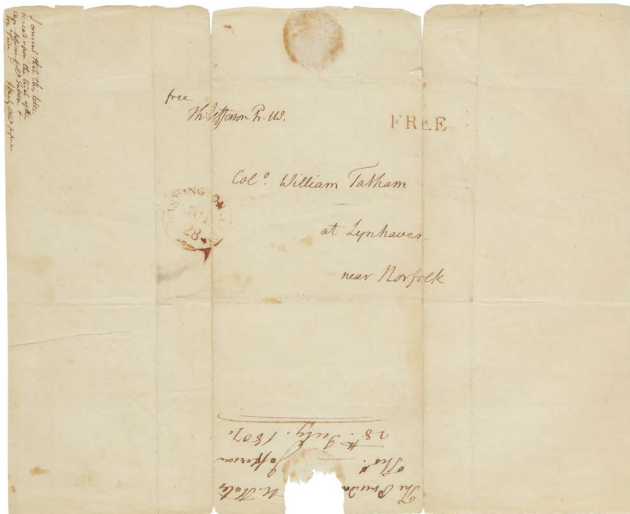 free
Th Jefferson Pr. US.
FREE
Colo. William Tatham
at Lynhaven
near Norfolk
WASHINGTON
JUL
28
The Presid U. States
Thos. Jefferson
28th July. 1807.
I that this letter